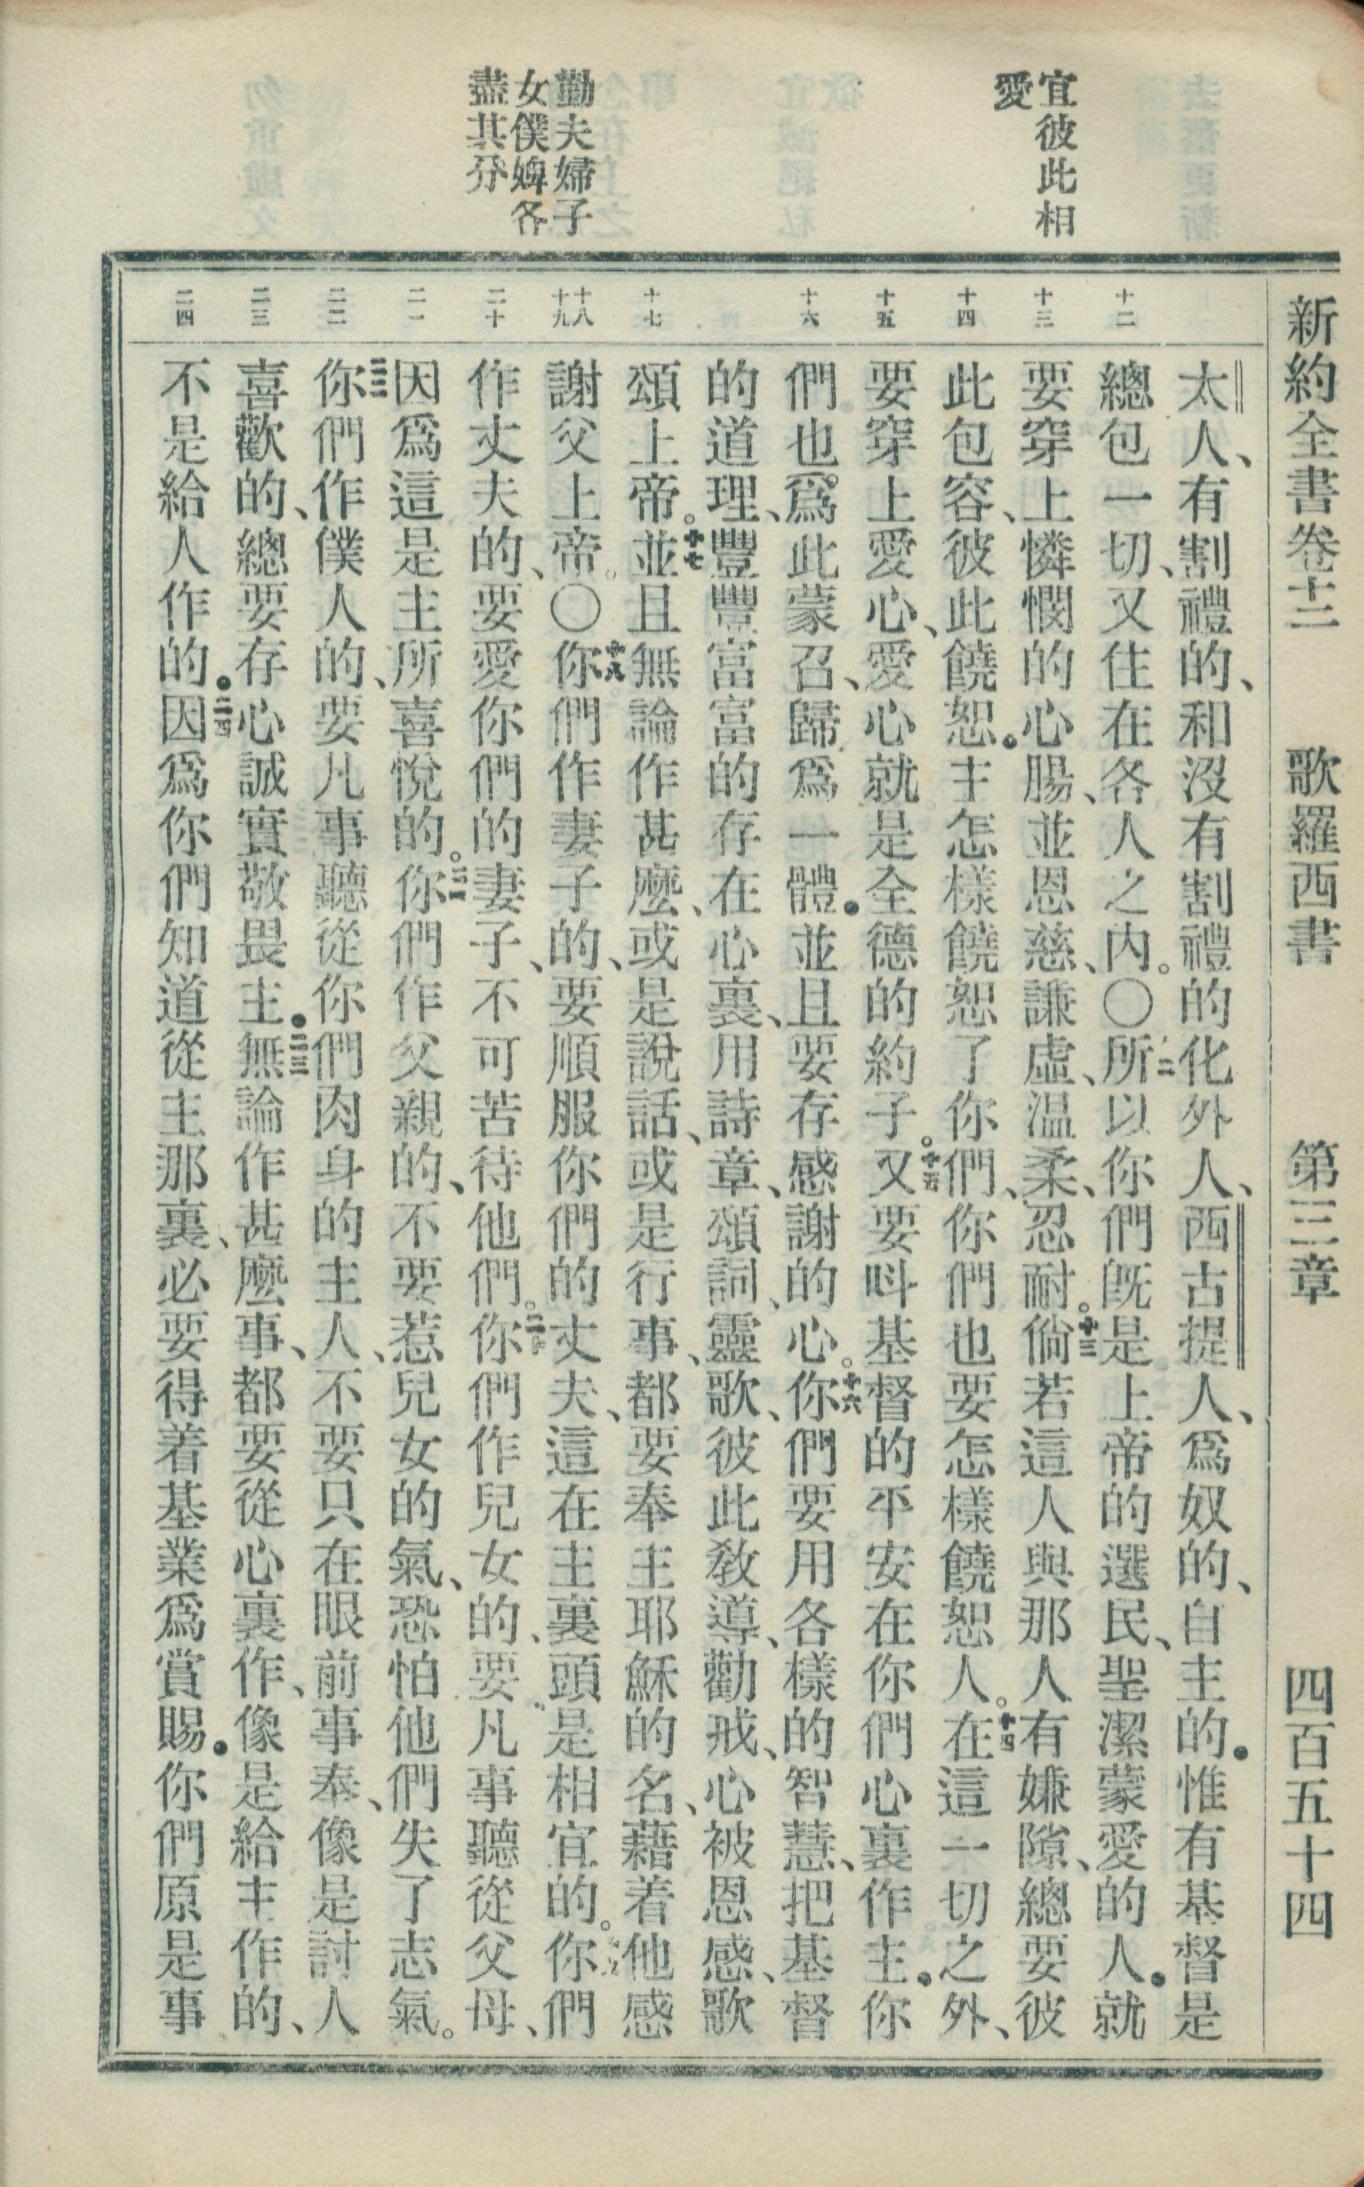 新約全書卷十二　歌羅西書　第三章　四百五十四
宜彼此相
愛
勸夫婦子
女僕婢各
盡其分
十二
十三
十四
十五
十六
十七
十八
十九
二十
二一
二二
二三
二四
太人、有割禮的、和沒有割禮的化外人、西古提人、爲奴的、自主的•惟有基督是
總包一切、又住在各人之內。○十二所以你們旣是上帝的選民、聖潔蒙愛的人•就
要穿上憐憫的心腸、並恩慈、謙虛、温柔、忍耐。十三倘若這人與那人有嫌隙、總要彼
此包容、彼此饒恕•主怎樣饒恕了你們、你們也要怎樣饒恕人。十四在這一切之外、
要穿上愛心、愛心就是全德的約子。十五又要呌基督的平安在你們心裏作主•你
們也爲此蒙召、歸爲一體•並且要存感謝的心。十六你們要用各樣的智慧、把基督
的道理、豐豐富富的存在心裏、用詩章、頌詞、靈歌、彼此敎導、勸戒、心被恩感、歌
頌上帝。十七並且無論作甚麽、或是說話、或是行事、都要奉主耶穌的名、藉着他感
謝父上帝。○十八你們作妻子的、要順服你們的丈夫、這在主裏頭是相宜的。十九你們
作丈夫的、要愛你們的妻子、不可苦待他們。二十你們作兒女的、要凡事聽從父母、
因爲這是主所喜悅的。二一你們作父親的、不要惹兒女的氣、恐怕他們失了志氣。
二二你們作僕人的、要凡事聽從你們肉身的主人、不要只在眼前事奉、像是討人
喜歡的、總要存心誠實敬畏主•二三無論作甚麽事、都要從心裏作、像是給主作的、
不是給人作的•二四因爲你們知道從主那裏、必要得着基業爲賞賜•你們原是事